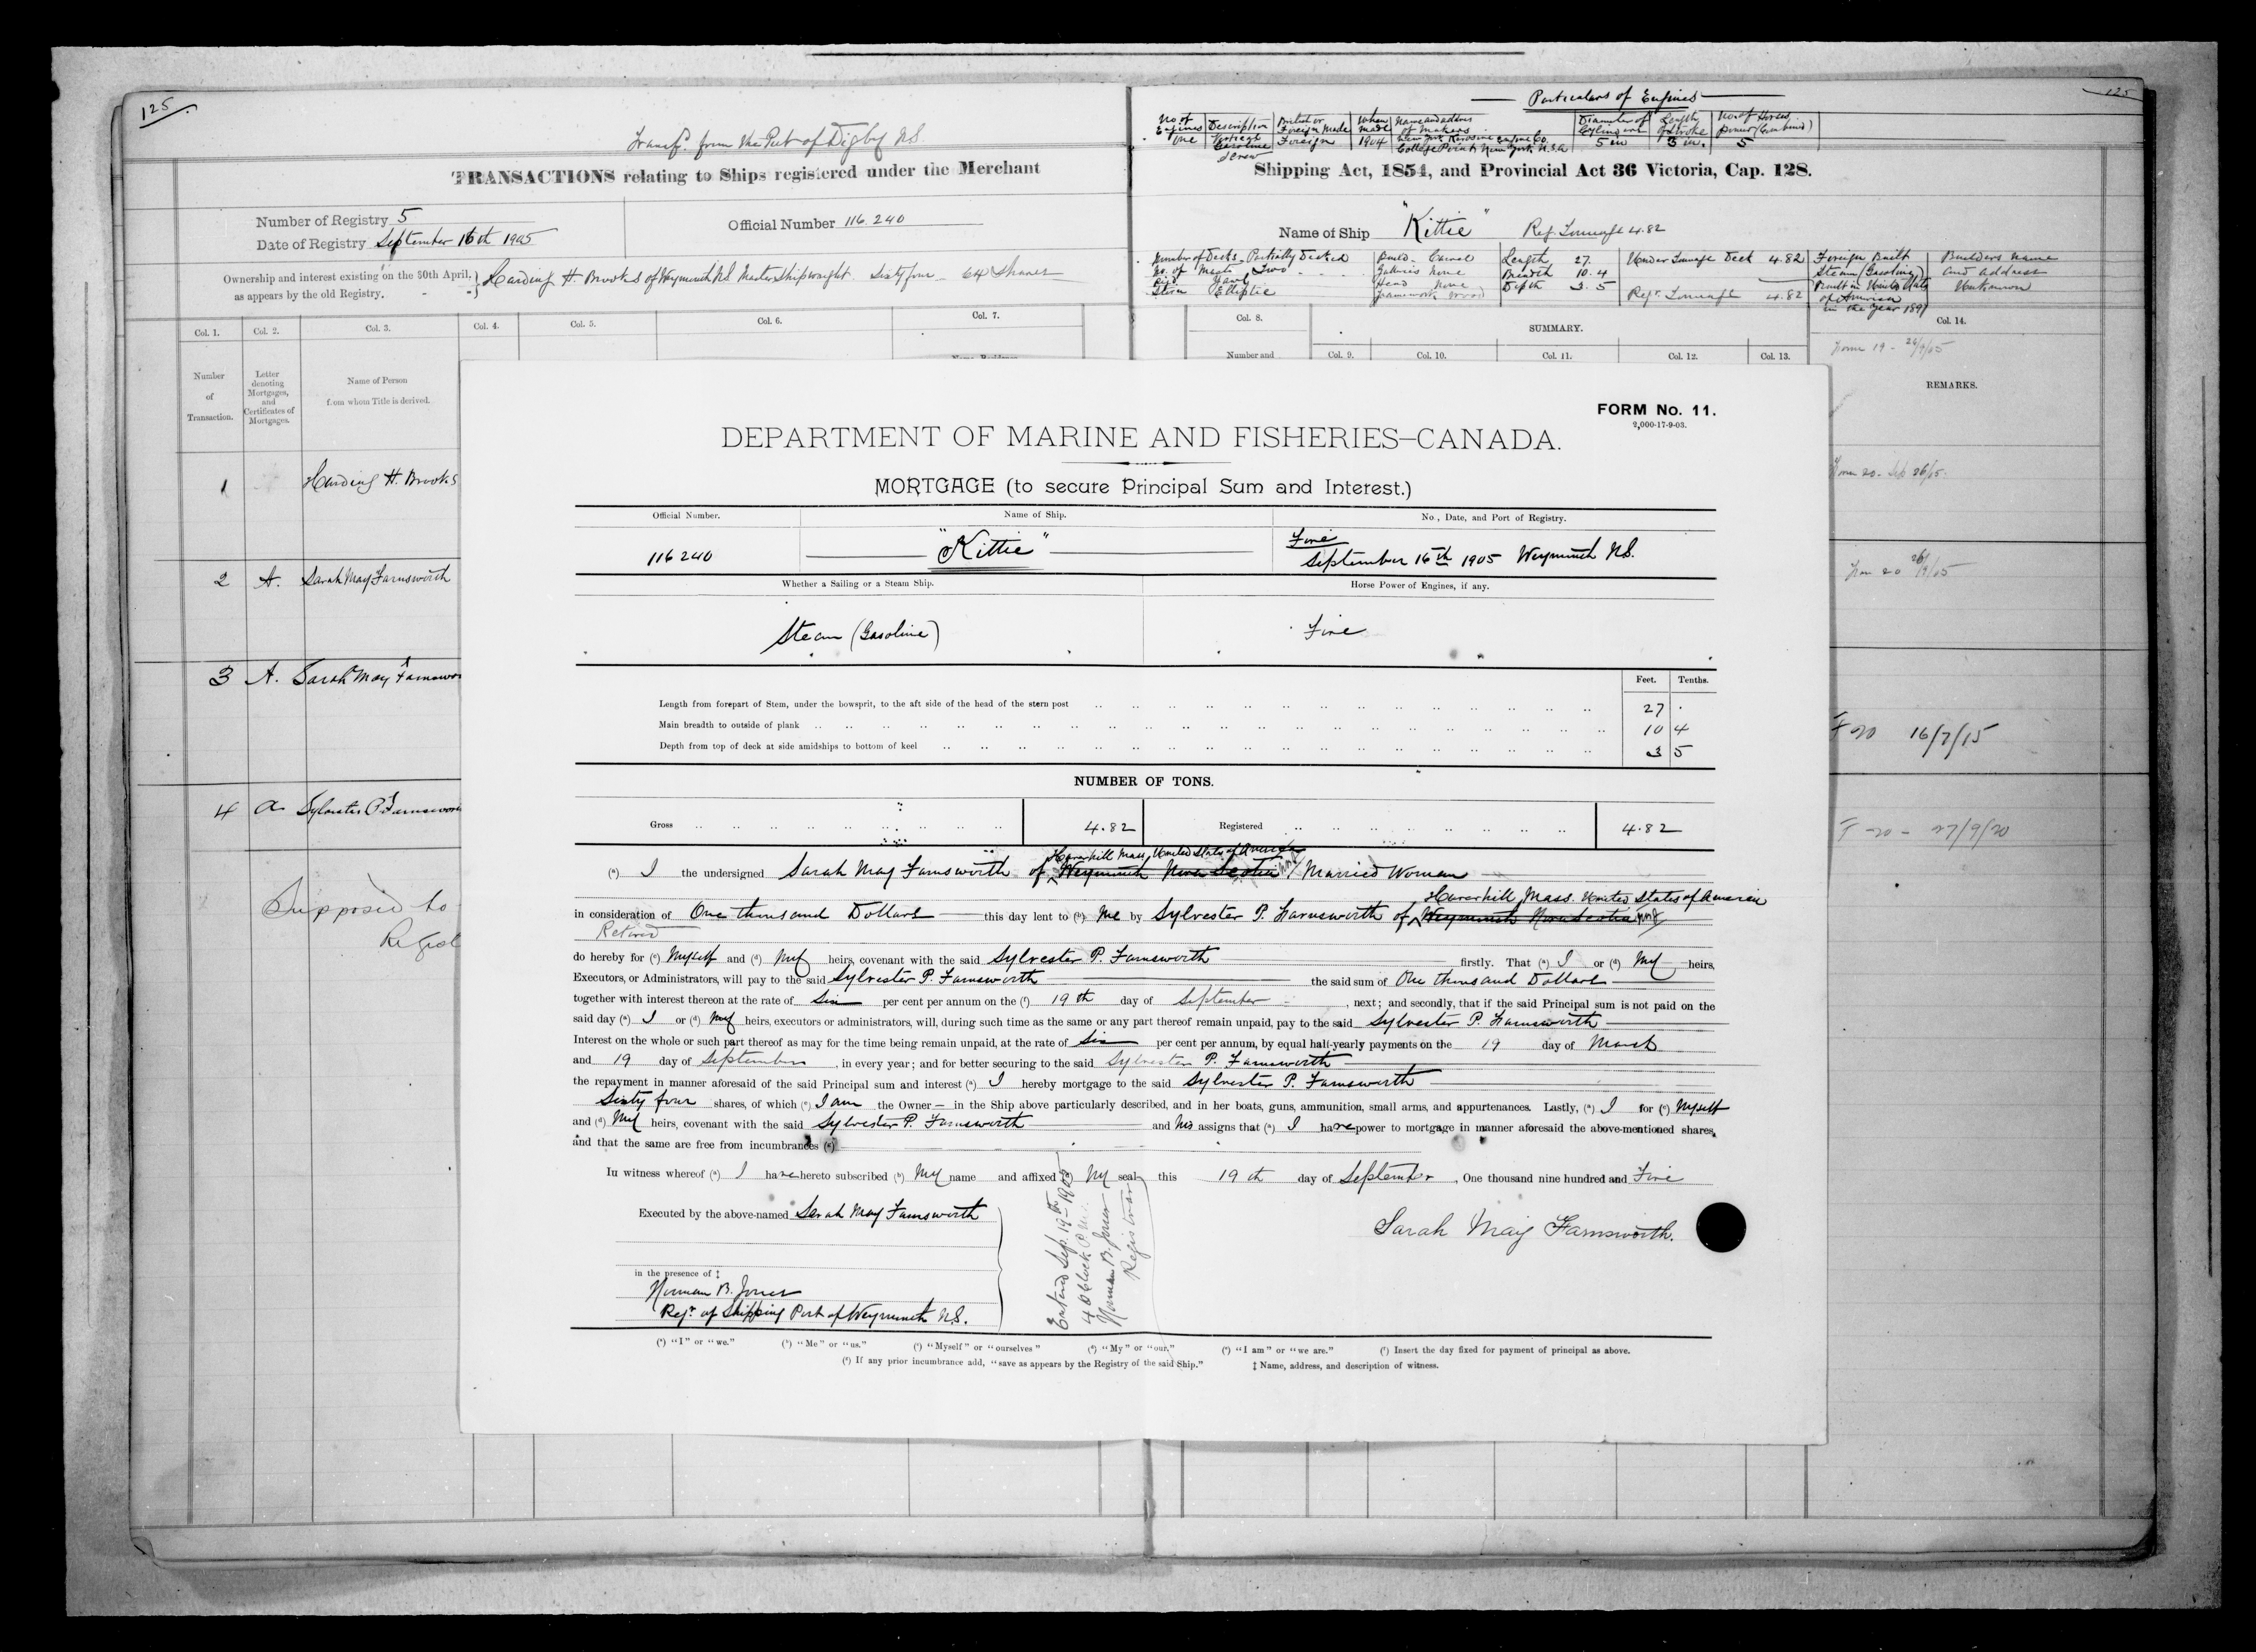 125
Transf. from the Port of Digby NS
TRANSACTIONS relating to Ships registered under the Merchant
Number of Registry 5
Date of Registry September 16th 1905
Official Number 116.240
Ownership and interest existing on the 30th April,
as appears by the old Registry.
Harding H. Brooks of Weymouth NS Master Shipwright. Sixty four 64 Shares
Col. 1. Col. 2. Col. 3. Col. 4. Col. 5. Col. 6. Col. 7.
Number of Transaction.
Letter denoting Mortgages, and Certificates of Mortgages.
Name of Person from whom Title is derived.
1 Harding H. Brooks
2 A. Sarah May Farnsworth
3 A. Sarah May
4 a Sylvester P.
Supposed to
125
Particulars of Engines
No of Engines Description British or Foreign Made When made Name and address of makers Diameter of Cylinders Length of Stroke No of Horses power (Combined)
One Vertical Gasoline Screw Foreign 1904 New York Kerosine Engine Co. College Point New York U.S.A 5 in 5 in. 5
Shipping Act, 1854, and Provincial Act 36 Victoria, Cap. 128.
Name of Ship "Kittie" Reg. Tonnage 4.82
Number of Decks Partially Decked Build Carvel Length 27. Under Tonnage Deck 4.82 Foreign Built Builders name
No. of Masts Two Galleries None Breadth 10.4 Steam (Gasoline) and address
Rig Yawl Head None Depth 3.5 Built in United States Unknown
Stern Elliptic Framework Wood Regr. Tonnage 4.82 of America
in the year 1897
Col. 8. SUMMARY. Col. 14.
Number and Col. 9. Col. 10. Col. 11. Col. 12. Col. 13.
REMARKS.
Form 19 - 26/9/05
Form 20 - Sep 26/05.
Form 20 26/9/05
F 20 16/7/15
F -20 - 27/9/20
FORM No. 11.
2,000-17-9-03.
DEPARTMENT OF MARINE AND FISHERIES–CANADA.
MORTGAGE (to secure Principal Sum and Interest.)
Official Number. Name of Ship. No., Date, and Port of Registry.
116240 "Kittie" Five
September 16th 1905 Weymouth N.S.
Whether a Sailing or a Steam Ship. Horse Power of Engines, if any.
Steam (Gasoline) Five
Feet. Tenths.
Length from forepart of Stem, under the bowsprit, to the aft side of the head of the stern post 27 .
Main breadth to outside of plank 10 4
Depth from top of deck at side amidships to bottom of keel 3 5
NUMBER OF TONS.
Gross 4.82 Registered 4.82
Haverhill Mass, United States of America
(a) I the undersigned Sarah May Farnsworth of Weymouth Nova Scotia Married Woman
Haverhill Mass United States of America
in consideration of One thousand Dollars this day lent to (b) Me by Sylvester P. Farnsworth of Weymouth Nova Scotia
Retired
do hereby for (c) Myself and (d) My heirs, covenant with the said Sylvester P. Farnsworth firstly. That (a) I or (d) My heirs,
Executors, or Administrators, will pay to the said Sylvester P. Farnsworth the said sum of One thousand Dollars
together with interest thereon at the rate of Six per cent per annum on the (f) 19th day of September , next; and secondly, that if the said Principal sum is not paid on the
said day (a) I or (d) My heirs, executors or administrators, will, during such time as the same or any part thereof remain unpaid, pay to the said Sylvester P. Farnsworth
Interest on the whole or such part thereof as may for the time being remain unpaid, at the rate of Six per cent per annum, by equal half-yearly payments on the 19 day of March
and 19 day of September , in every year; and for better securing to the said Sylvester P. Farnsworth
the repayment in manner aforesaid of the said Principal sum and interest (a) I hereby mortgage to the said Sylvester P. Farnsworth
Sixty four shares, of which (e) I am the Owner in the Ship above particularly described, and in her boats, guns, ammunition, small arms, and appurtenances. Lastly, (a) I for (c) Myself
and (d) My heirs, covenant with the said Sylvester P. Farnsworth and his assigns that (a) I have power to mortgage in manner aforesaid the above-mentioned shares,
and that the same are free from incumbrances (g)
In witness whereof (a) I have hereto subscribed (h) My name and affixed My seal this 19th day of September , One thousand nine hundred and Five
Executed by the above-named Sarah May Farnsworth
Sarah May Farnsworth.
in the presence of ‡
Norman B. Jones
Regr. of Shipping Port of Weymouth N.S.
Entered Sep. 19th 1905
4 O'Clock
Norman B. Jones
Registrar
(a) "I" or "we." (b) "Me" or "us." (c) "Myself" or "ourselves" (d) "My" or "our." (e) "I am" or "we are." (f) Insert the day fixed for payment of principal as above.
(g) If any prior incumbrance add, "save as appears by the Registry of the said Ship." ‡ Name, address, and description of witness.